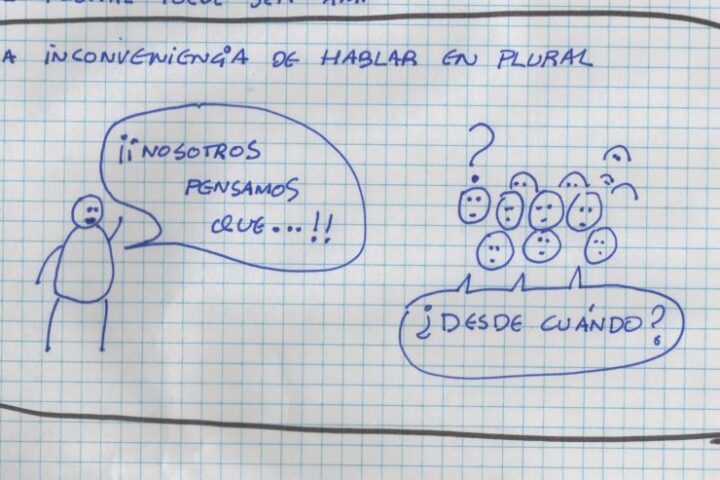 PLURAL PUEDE SER
A INCONVENIENCIA DE HABLAR EN PLURAL
¡¡NOSOTROS
PENSAMOS
QUE...!!
?
¿DESDE CUÁNDO?